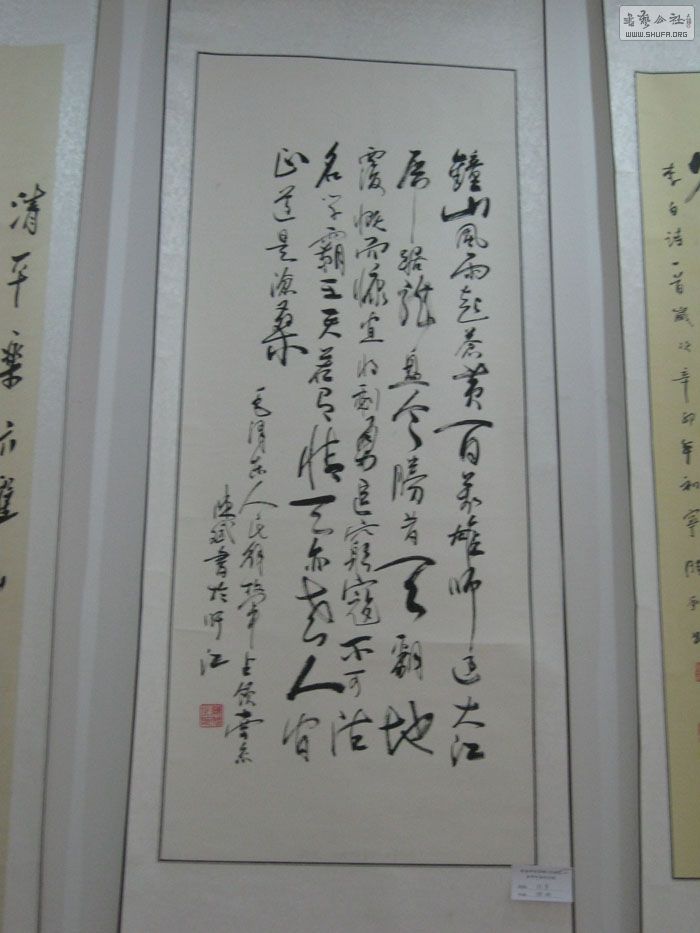 書藝公社
WWW.SHUFA.ORG
李白诗一首歲次辛卯年和寧
鐘山風雨起蒼黄百萬雄師过大江
虎踞龍盤今勝昔天翻地
覆慨而慷宜将剩勇追窮寇不可沽
名学霸王天若有情天亦老人间
正道是滄桑
毛澤东人民解放军占领南京
书於盱江
清平樂六盘山